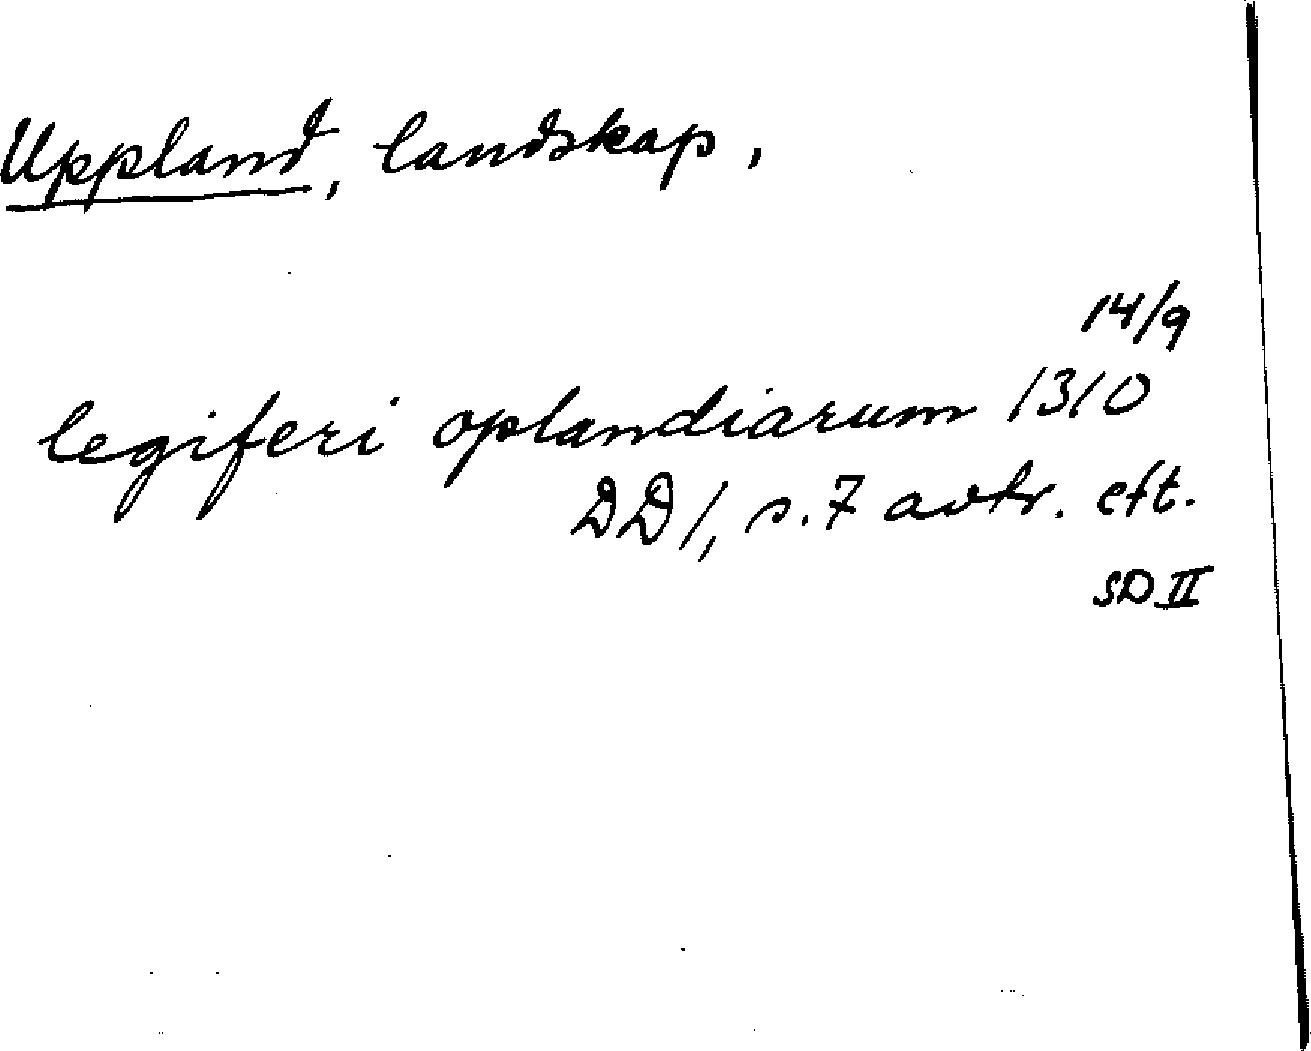 Uppland, landskap,
14/9
legiferi oplandiarum 1310
DD 1, s. 7 avtr. eft.
SD II